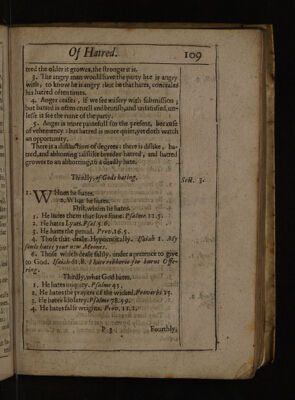 Of Hatred.
109
tred the older it growes, the stronger it is.
3. The angry man would have the party hee is angry
with, to know he is angry : but he that hates, conceales
his hatred oftentimes.
4. Anger ceases, if we see misery with submission ;
but hatred is often cruell and brutish, and unsatisfied, un-
lesse it see the ruine of the party.
5. Anger is more painefull for the present, because
of vehemency : but hatred is more quiet, yet doth watch
an opportunity.
There is a distinction of degrees : there is dislike, ha-
tred, and abhorring : dislike breedes hatred, and hatred
growes to an abhorring, to a deadly hate.
Thirdly, of Gods hating.
Sect. 3.
1. Whom he hates.
2. What he hates.
First, whom he hates.
1. He hates them that love sinne. Psalme 11.5.
2. He hates Lyars. Psal. 5.6.
3. He hates the proud. Prov. 16.5.
4. Those that deale Hypocritically. Isaiah 1. My
soule hates your new Moones.
6. Those which deale falsly, under a pretence to give
to God. Isaiah 61.8. I hate robberie for burnt Offe-
ring.
Thirdly, what God hates.
1. He hates iniquity. Psalme 45.
2. He hates the prayers of the wicked. Proverbs 15.
3. He hates idolatry. Psalme 78.59.
4. He hates false weights. Prov. 11.1.
P 3
Fourthly,